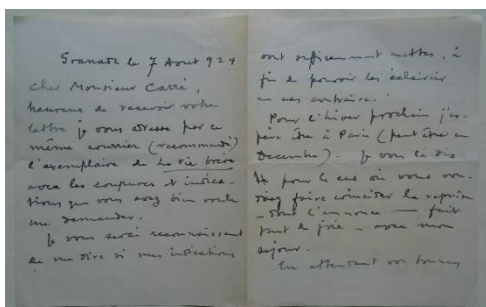 Granada le 7 Aout 924
Cher Monsieur Carré,
heureux de recevoir votre
lettre je vous adresse par ce
même courrier (recommandé)
l'exemplaire de La Vie breve
avec les coupures et indica-
tions que vous avez bien voulu
me demander.
Je vous serai reconnaissant
de me dire si mes indications
sont suffisamment nettes, à
fin de pouvoir les éclaircir
en cas contraire.
Pour l'hiver prochain j'es-
père être à Paris (peut être en
Decembre). Je vous le dis
pour le cas où vous vou-
driez faire coincider la reprise
– dont l'annonce me fait
tant de joie – avec mon
sejour.
En attendant vos bonnes